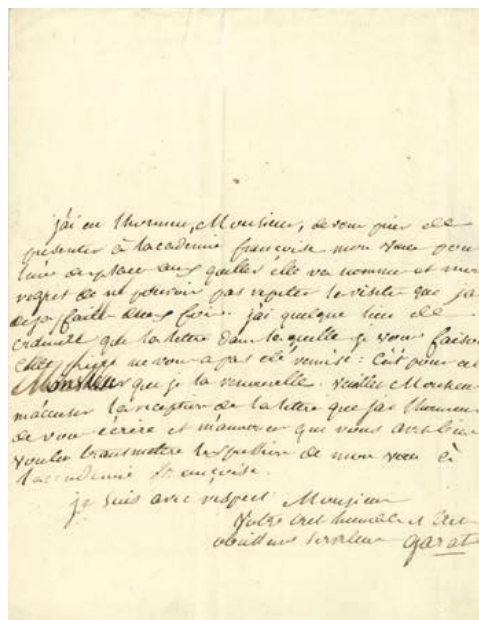 j'ai eu l'honneur, Monsieur, de vous prier de
présenter à l'académie françoise mon vœu pour
l'une des places aux quelles elle va nommer et mes
regret de ne pouvoir pas repeter la visite que j'ai
deja faite deux fois. j'ai quelque lieu de
craindre que la lettre dans laquelle je vous faisois
cette prière ne vous a pas été remise: c'est pour cela
Monsieur que je la renouvelle. veuillez Monsieur
m'accuser la reception de la lettre que j'ai l'honneur
de vous écrire et m'annoncer que vous avez bien
voulu transmettre l'expression de mon vœu à
l'académie françoise.
je suis avec respect Monsieur
Votre très humble et très
obeissant serviteur garat